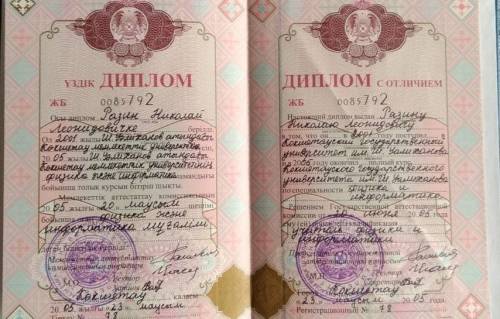 ҮЗДІК ДИПЛОМ
ЖБ 0085792
Осы диплом Разин Николай
Леонидовичке берілді
Ол 2001 жылы Ш.Уәлиханов атындағы
Көкшетау мемлекеттік университетін
20 05 жылы Ш.Уәлиханов атындағы
Көкшетау мемлекеттік университетінің
физика және информатика
мамандығы
бойынша толық курсын бітіріп шықты.
Мемлекеттік аттестаттау комиссиясының
20 05 жылғы 20 маусым шешімі
физика және
информатика мұғалімі
Көкшетау қаласы
20 05 жылғы 23 маусым
78
ДИПЛОМ С ОТЛИЧИЕМ
ЖБ 0085792
Настоящий диплом выдан Разину
Николаю Леонидовичу
в том, что он в 2001 году поступил в
Кокшетауский государственный
университет им. Ш. Уалиханова
и в 2005 году окончил полный курс
Кокшетауского государственного
университета им. Ш. Уалиханова
по специальности физика и
информатика
Решением Государственной аттестационной
комиссии от 20 июня 20 05 года
учитель физики и
информатики
М.П.
Ректор
Секретарь
Город Кокшетау
23 20 05 год.
Регистрационный № 78